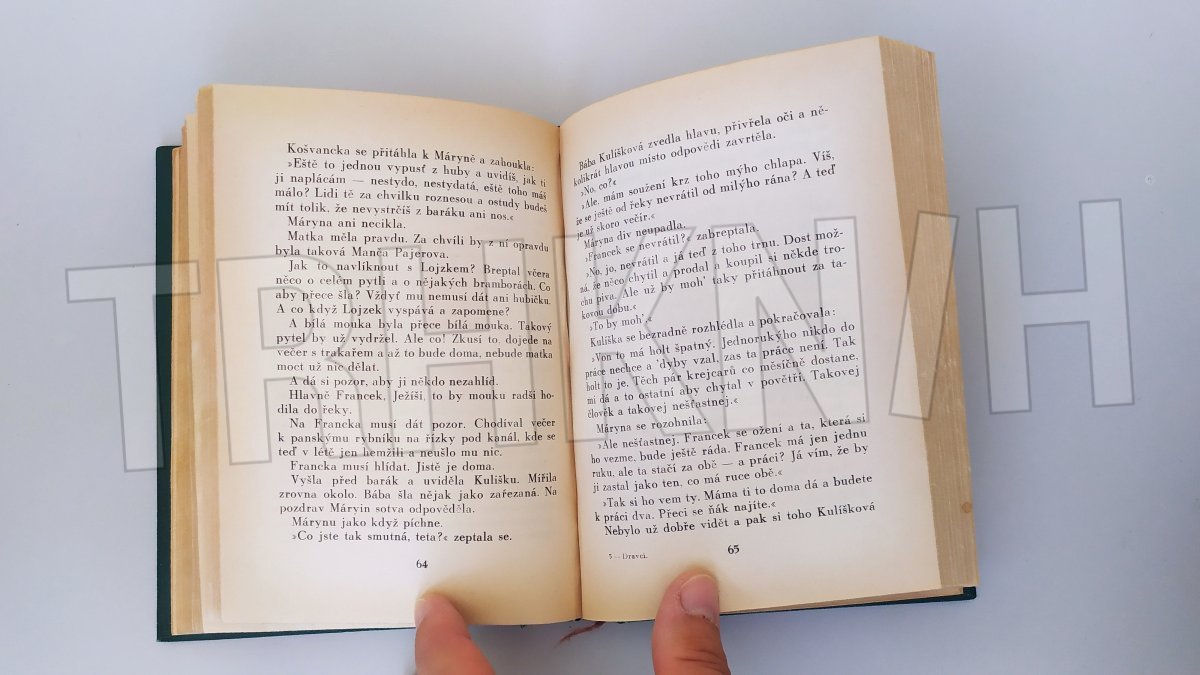 Košvancka se přitáhla k Máryně a zahoukla:
»Eště to jednou vypusť z huby a uvidíš, jak ti
ji naplácám — nestydo, nestydatá, eště toho máš
málo? Lidi tě za chvilku roznesou a ostudy budeš
mít tolik, že nevystrčíš z baráku ani nos.«
Máryna ani necikla.
Matka měla pravdu. Za chvíli by z ní opravdu
byla taková Manča Pajerova.
Jak to navlíknout s Lojzkem? Breptal včera
něco o celém pytli a o nějakých bramborách. Co
aby přece šla? Vždyť mu nemusí dát ani hubičku.
A co když Lojzek vyspává a zapomene?
A bílá mouka byla přece bílá mouka. Takový
pytel by už vydržel. Ale co! Zkusí to, dojede na
večer s trakařem a až to bude doma, nebude matka
moct už nic dělat.
A dá si pozor, aby ji někdo nezahlíd.
Hlavně Francek, Ježíši, to by mouku radši ho-
dila do řeky.
Na Francka musí dát pozor. Chodíval večer
k panskýmu rybníku na řízky pod kanál, kde se
teď v létě jen hemžili a neušlo mu nic.
Francka musí hlídat. Jistě je doma.
Vyšla před barák a uviděla Kulišku. Mířila
zrovna okolo. Bába šla nějak jako zařezaná. Na
pozdrav Máryin sotva odpověděla.
Márynu jako když píchne.
»Co jste tak smutná, teta?« zeptala se.
64
Bába Kulíšková zvedla hlavu, přivřela oči a ně-
kolikrát hlavou místo odpovědi zavrtěla.
»No, co?«
»Ale, mám soužení krz toho mýho chlapa. Víš,
že se ještě od řeky nevrátil od milýho rána? A teď
je už skoro večír.«
Máryna div neupadla.
»Francek se nevrátil?« zabreptala.
»No, jo, nevrátil a já teď z toho trnu. Dost mož-
ná, že něco chytil a prodal a koupil si někde tro-
chu piva. Ale už by moh' taky přitáhnout za ta-
kovou dobu.«
»To by moh'.«
Kuliška se bezradně rozhlédla a pokračovala:
»Von to má holt špatný. Jednorukýho nikdo do
práce nechce a 'dyby vzal, zas ta práce není. Tak
holt to je. Těch pár krejcarů co měsíčně dostane,
mi dá a to ostatní aby chytal v povětří. Takovej
člověk a takovej nešťastnej.«
Máryna se rozohnila:
»Ale nešťastnej. Francek se ožení a ta, která si
ho vezme, bude ještě ráda. Francek má jen jednu
ruku, ale ta stačí za obě — a práci? Já vím, že by
ji zastal jako ten, co má ruce obě.«
»Tak si ho vem ty. Máma ti to doma dá a budete
k práci dva. Přeci se ňák najíte.«
Nebylo už dobře vidět a pak si toho Kulíšková
5 — Dravci.
65
TRHKNIH